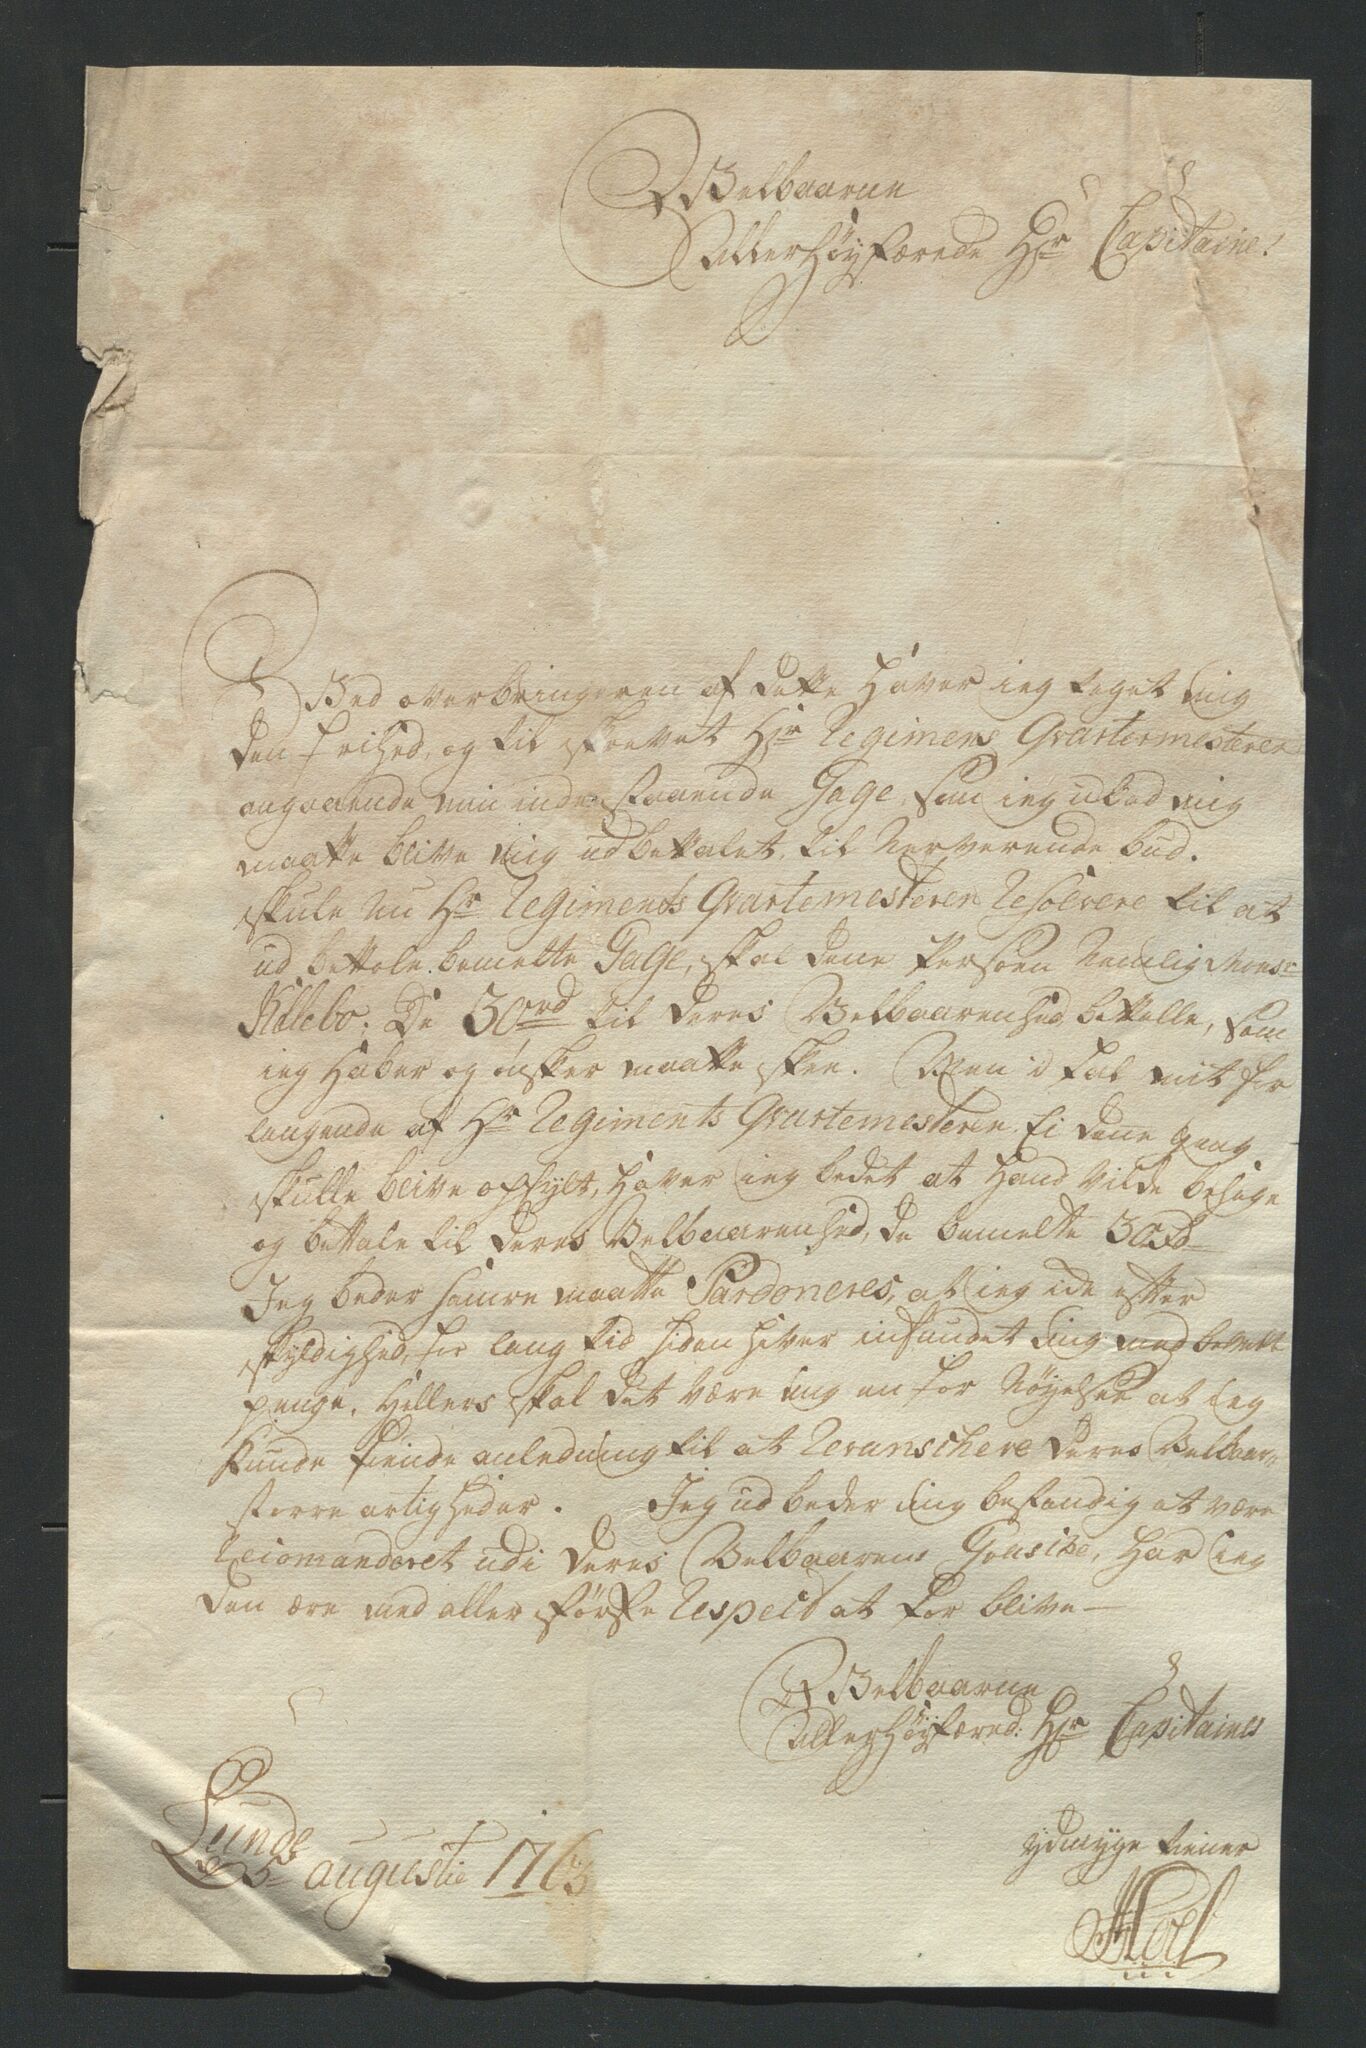 Velbaarne
Allerhøystærede Hr Capitaine!
Ved overbringeren af dette haver ieg taget mig
den frihed, og til skrevet Hr Regimens Qvartermesteren
angaaende min inde staaende Gage, som ieg udbad mig
maatte blive mig udbettalet, til Nerverende bud.
skule nu Hr Regiments Qvartemesteren Resolvere til at
ud bettale bemelte Gage, skal dene Persoen Nemlig Monsr
Killebo, De 30rd til deres Velbaarenhed bettalle, som
ieg Haber og ønsker maatte skee. Men i fal mit for
langende af Hr Regiments Qvartemesteren Ei dene gang
skulle blive opfylt, haver ieg bedet at Hand Vilde besøge
og bettale til deres Velbaarenhed, de bemelte 30rd
Jeg beder hamre maatte Pardoneres, at ieg icke efter
skyldighed, for lang tid siden haver infundet mig med bemelt
penge, Hellers skal det være mig en for Nøyelse at ieg
kunde finde anledning til at Revanschere deres Velbaar:
større artigheder. Jeg ud beder mig bestandig at være
Recomanderet udi deres Velbaarens Gunst, har ieg
den ære med aller største Respect at for blive
Velbaarne
Allerhøystæred: Hr Capitaines
ydmyge tiener
Lunde
d 5te augustii 1763